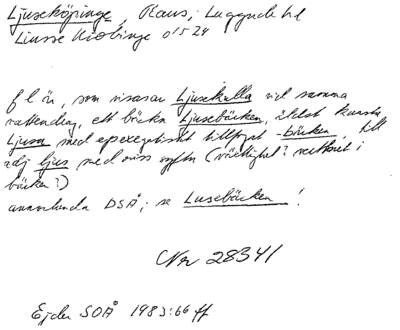 Ljuseköpinge, Raus, Luggude hd
Liusse Kiöbinge 01524
fl ån, som invid Ljusekulla vid samma
vattendrag, ett bäckn Ljusebäcken, äldst kanske
Ljusa med epexegetiskt tillfogat -bäcken, till
adj ljus med viss syftn (växtlighet? vattnet i
bäcken?)
annorlunda DSÅ; se Lusebäcken!
Nr 28341
Ejder SOÅ 1983:66 ff